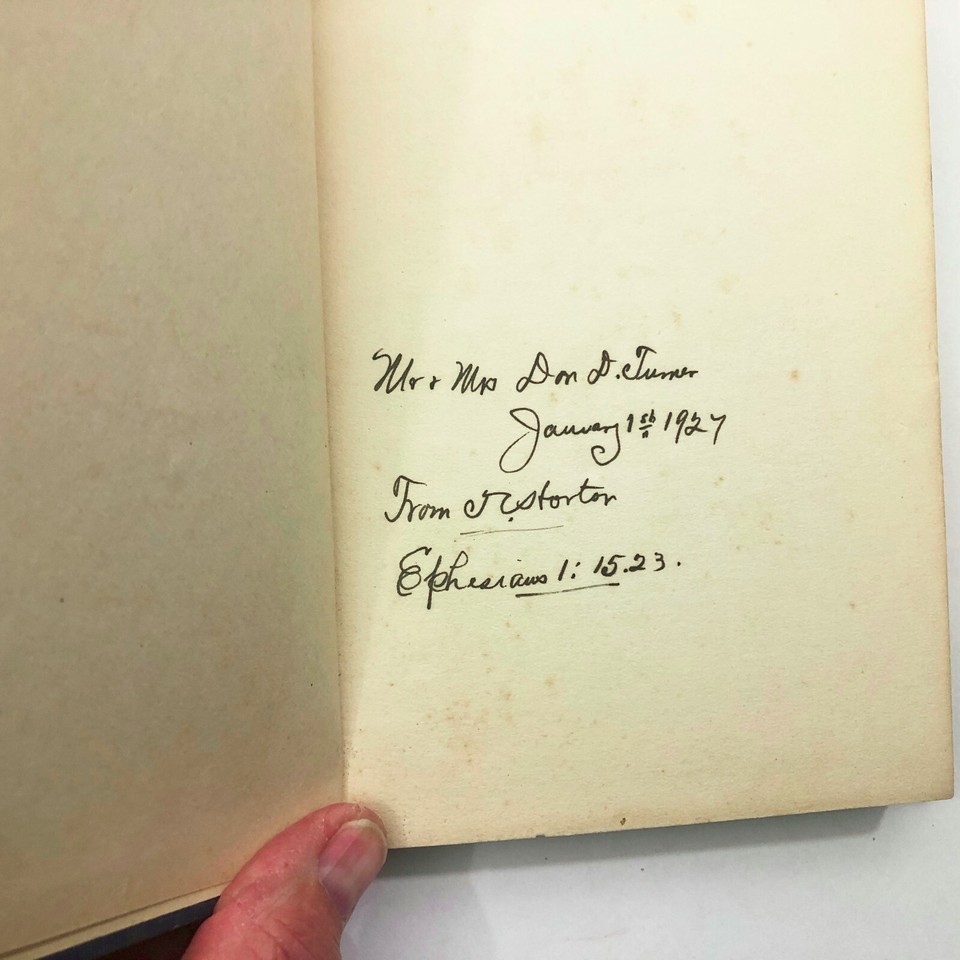 Mr & Mrs Don D. Turner
January 1st 1927
From
Ephesians 1: 15.23.